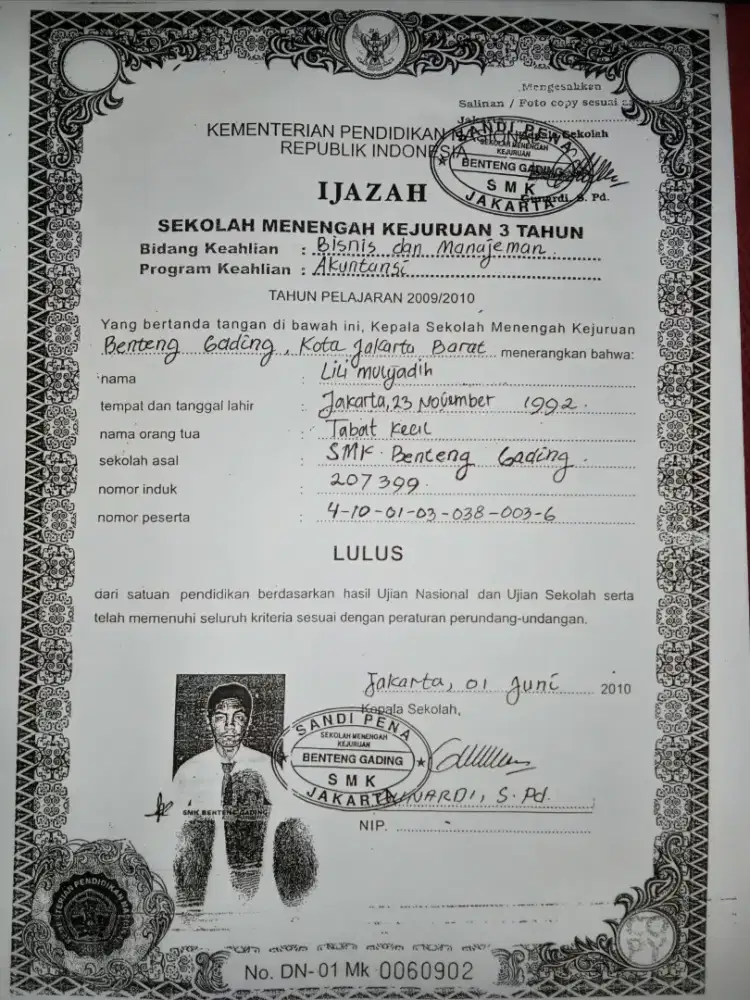 Mengesahkan
Salinan / Foto copy sesuai
Sekolah
KEMENTERIAN PENDIDIKAN NASIONAL
REPUBLIK INDONESIA
SANDI PENA
SEKOLAH MENENGAH
KEJURUAN
BENTENG GADING
SMK
JAKARTA
Gunardi, S. Pd.
IJAZAH
SEKOLAH MENENGAH KEJURUAN 3 TAHUN
Bidang Keahlian : Bisnis dan Manajeman
Program Keahlian : Akuntansi
TAHUN PELAJARAN 2009/2010
Yang bertanda tangan di bawah ini, Kepala Sekolah Menengah Kejuruan
Benteng Gading, Kota Jakarta Barat menerangkan bahwa:
nama : Lili mulyadih
tempat dan tanggal lahir : Jakarta, 23 November 1992.
nama orang tua : Tabat Kecil
sekolah asal : SMK. Benteng Gading.
nomor induk : 207399.
nomor peserta : 4-10-01-03-038-003-6
LULUS
dari satuan pendidikan berdasarkan hasil Ujian Nasional dan Ujian Sekolah serta
telah memenuhi seluruh kriteria sesuai dengan peraturan perundang-undangan.
Jakarta, 01 Juni 2010
Kepala Sekolah,
SANDI PENA
SEKOLAH MENENGAH
KEJURUAN
BENTENG GADING
SMK
JAKARTA
GUNARDI, S.Pd.
SMK BENTENG GADING
NIP.
No. DN-01 Mk 0060902